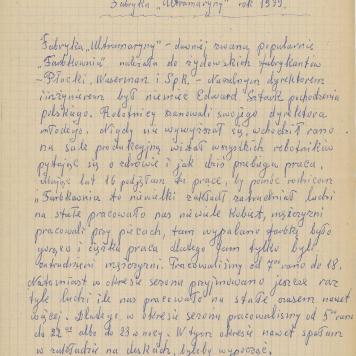 Fabryka „Ultramaryny" rok 1939.
Fabryka „Ultramaryny" - dawniej zwana popularnie
„Farbkownia" należała do żydowskich fabrykantów
- Płocki, Waserman i Spk. - Naczelnym dyrektorem
i inżynierem był niemiec Edward Sztark pochodzenia
polskiego. Robotnicy szanowali swojego dyrektora
młodego. Nigdy nie wywyższał się, wchodził rano
na salę produkcyjną witał wszystkich robotników
pytając się o zdrowie i jak dziś przebiega praca.
Mając lat 16 podjęłam tu pracę, by pomóc rodzicom
„Farbkownia to niewielki zakład zatrudniał ludzi
na stałe pracowało nas niewiele kobiet, mężczyzni
pracowali przy piecach, tam wypalano farbkę było
gorąco i ciężka praca dlatego tam tylko byli
zatrudnieni mężczyzni. Pracowaliśmy od 7 rano do 18.
Natomiast w okresie sezonu przyjmowano jeszcze raz
tyle ludzi ile nas pracowało na stałe czasem nawet
więcej. Dlatego, w okresie sezonu pracowaliśmy od 5 rano
do 22 albo do 23 w nocy. W tym okresie nawet spałam
w zakładzie na deskach, byleby wypocząć.